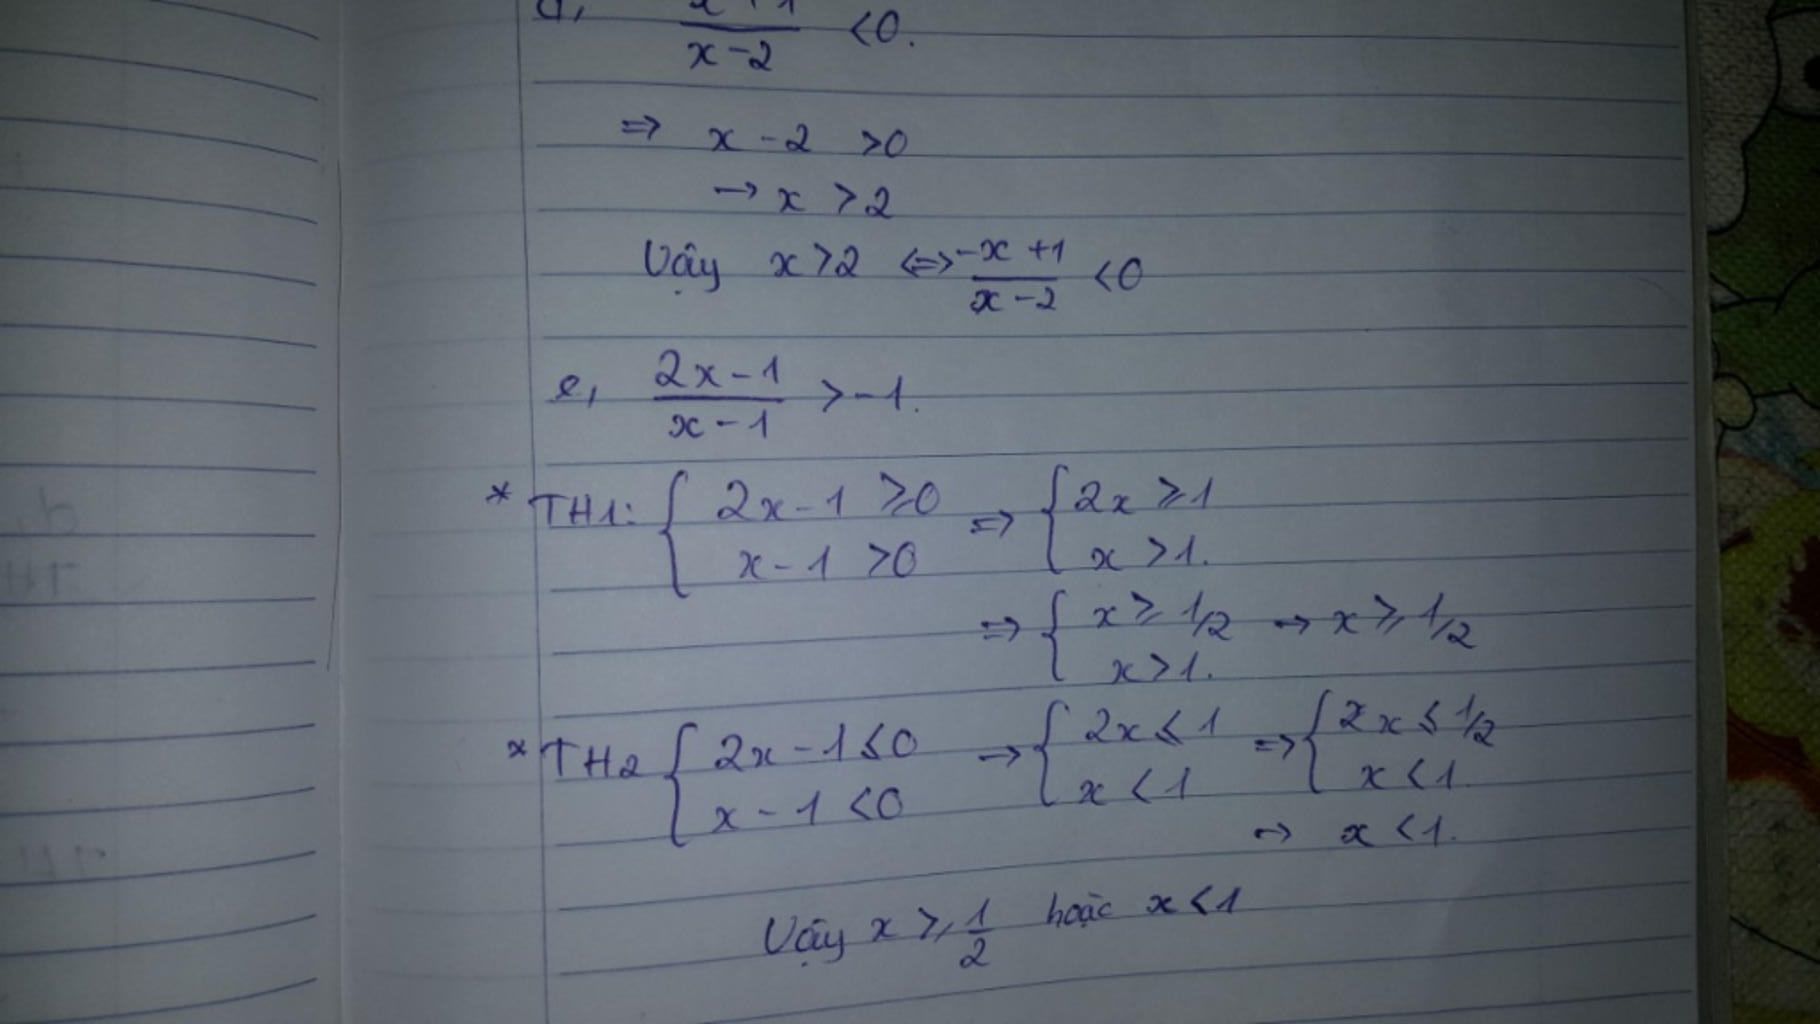 x+1
/
x-2 <0.
⇒ x-2 >0
→ x >2
Vậy x>2 ⇔ -x+1/x-2 <0
e, 2x-1/x-1 >-1.
* TH1: { 2x-1 ≥0 ⇒ { 2x ≥1
x-1 >0 x >1.
⇒ { x ≥ 1/2 → x ≥ 1/2
x>1.
* TH2 { 2x-1≤0 → { 2x ≤ 1 ⇒ { 2x ≤ 1/2
x-1 <0 x < 1 x < 1.
→ x <1.
Vậy x ≥ 1/2 hoặc x < 1